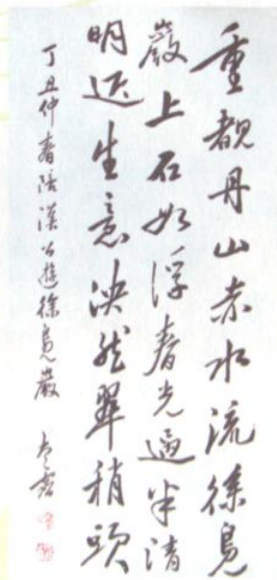 重覩丹山赤水流徐鳧
巖上石如浮春光過半清
明近生意泱然翠稍頭
丁丑仲春陪漢公遊徐鳧巖